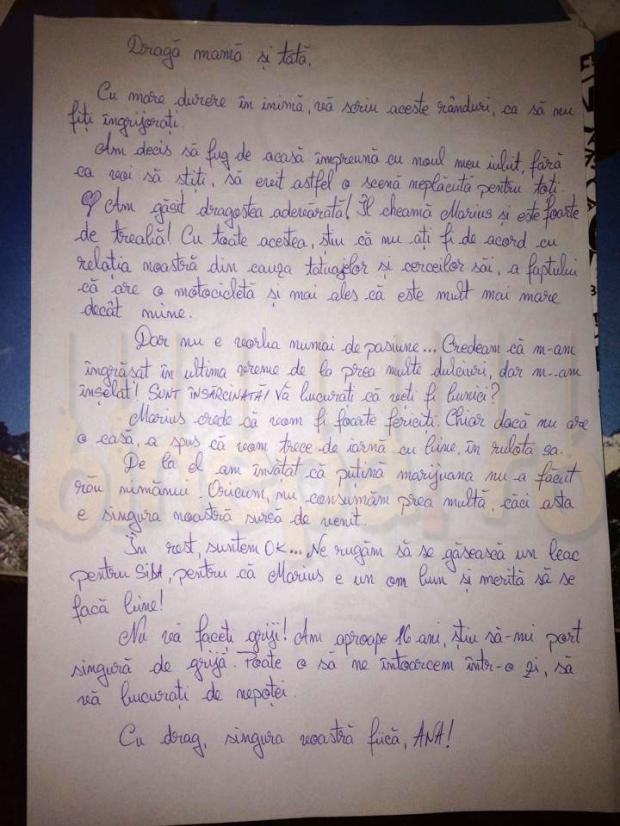 Dragă mamă și tată,
Cu mare durere în inimă, vă scriu aceste rânduri, ca să nu
fiți îngrijorați.
Am decis să fug de acasă împreună cu noul meu iubit, fără
ca voi să știți, să evit astfel o scenă neplăcută pentru toți.
♡ Am găsit dragostea adevărată! Îl cheamă Marius și este foarte
de treabă! Cu toate acestea, știu că nu ați fi de acord cu
relația noastră din cauza tatuajelor și cerceilor săi, a faptului
că are o motocicletă și mai ales că este mult mai mare
decât mine.
Dar nu e vorba numai de pasiune... Credeam că m-am
îngrășat în ultima vreme de la prea multe dulciuri, dar m-am
înșelat! SUNT ÎNSĂRCINATĂ! Vă bucurați că veți fi bunici?
Marius crede că vom fi foarte fericiți. Chiar dacă nu are
o casă, a spus că vom trece de iarnă cu bine, în rulota sa.
De la el am învățat că puțină marijuana nu a făcut
rău nimănui. Oricum, nu consumăm prea multă, căci asta
e singura noastră sursă de venit.
În rest, suntem OK... Ne rugăm să se găsească un leac
pentru SIDA, pentru că Marius e un om bun și merită să se
facă bine!
Nu vă faceți griji! Am aproape 16 ani, știu să-mi port
singură de grijă. Poate o să ne întoarcem într-o zi, să
vă bucurați de nepoței.
Cu drag, singura voastră fiică, ANA!